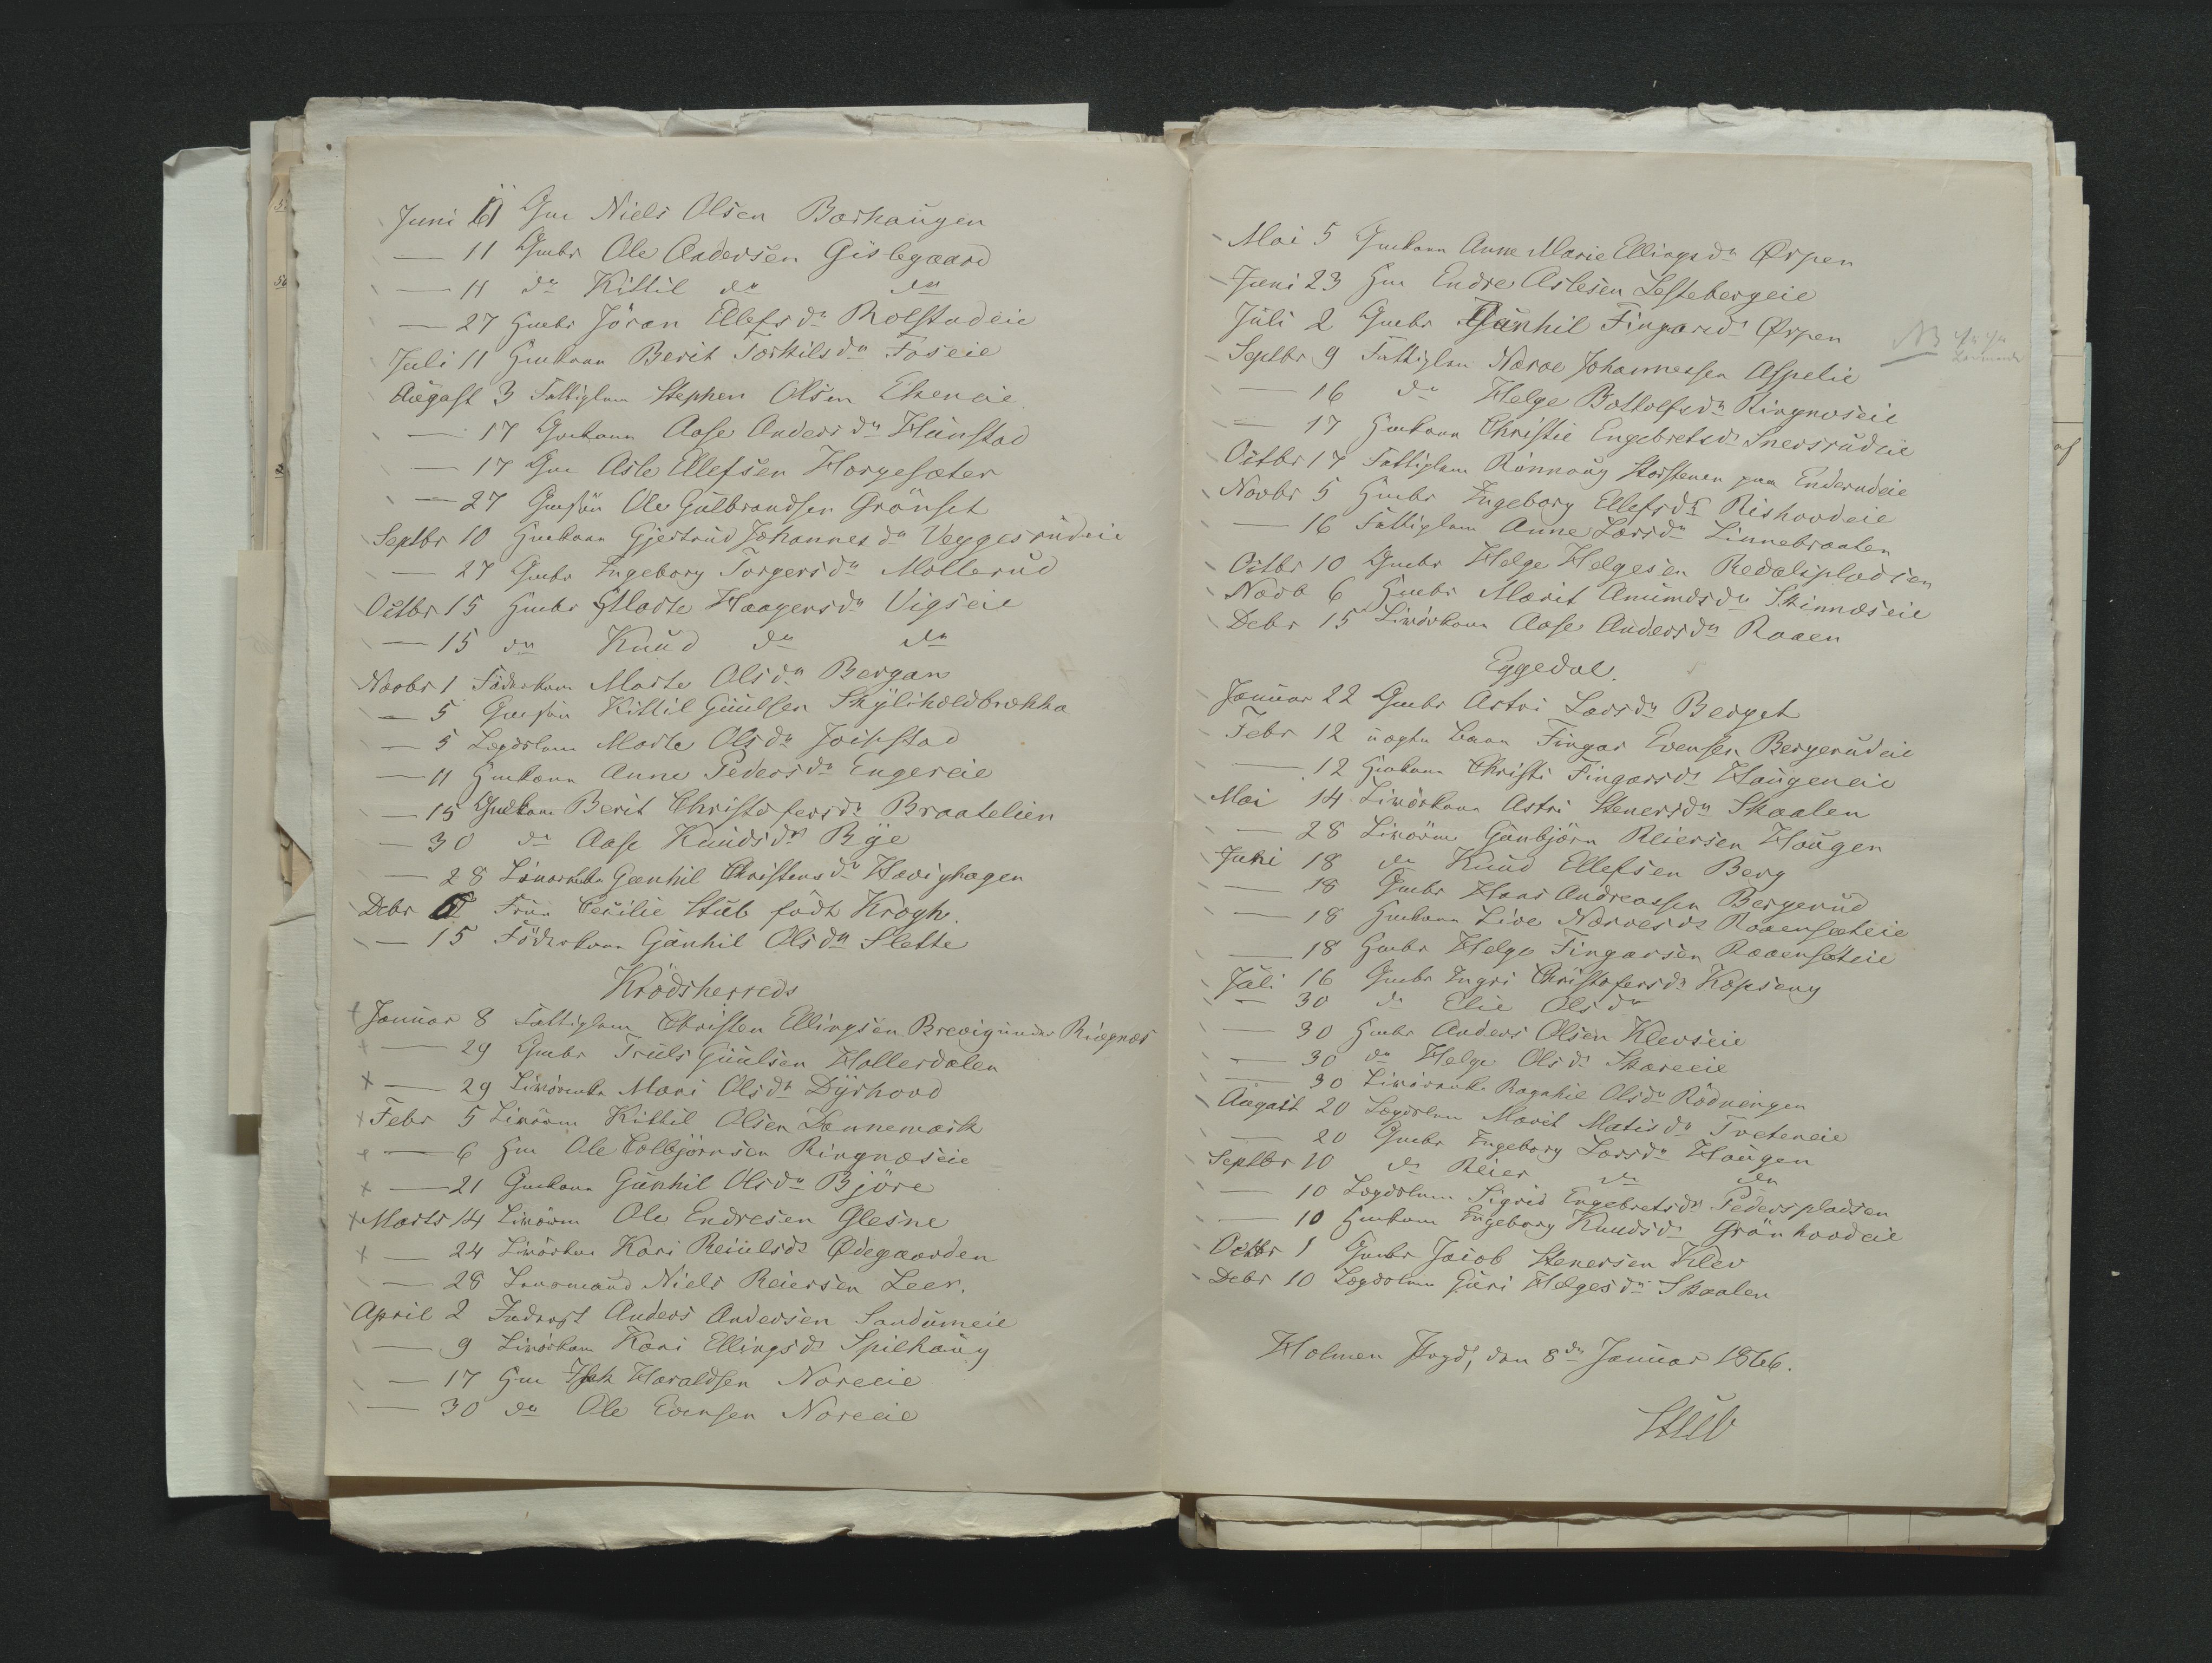 Juni 11 Gm Niels Olsen Borhaugen
— 11 Gmbr Ole Andersen Gislegaard
— 11 do Kittil do do
— 27 Hmbr Jöran Ellefsdr Rolstadeie
Juli 11 Hmkone Berit Torkilsdr Foseie
August 3 Fattiglem Stephen Olsen Ekeneie
— 17 Gmkone Aase Andersdr Hunstad
— 17 Gm Asle Ellefsen Horgesæter
— 27 Gmsön Ole Gulbrandsen Grönset
Septbr 10 Hmkone Gjertrud Johannesdr Veggesrudeie
— 27 Gmbr Ingeborg Torgersdr Mollerud
Octbr 15 Hmbr Marte Haagensdr Vigseie
— 15 do Knud do do
Novbr 1 Föderkone Marte Olsdr Bergan
— 5 Gmsön Kittil Guulsen
— 5 Lægdslem Marte Olsdr Joinstad
— 11 Hmkone Anne Pedersdr Engereie
— 15 Gmkone Berit Christofersdr Braatelien
— 30 do Aase Knudsdr Bye
— 28 Gunhil Christensdr Havighagen
Debr Frue Cecilie Stub födt Krogh.
— 15 Föderkone Gunhil Olsdr Slette
Krödsherreds
Januar 8 Fattiglem Christen Ellingsen Brevig under Ringnæs
— 29 Gmbr Truls Guulsen Hollerdalen
— 29 Mari Olsdr Dyrhovd
Febr 5 Kittil Olsen Dannemark
— 6 Hm Ole Colbjørnsen Ringnæseie
— 21 Gmkone Gunhil Olsdr Björe
Marts 14 Ole Endresen Glesne
— 24 Kari Ødegaarden
— 28 Niels Reiersen Leer.
April 2 Inderst Anders Andersen Sandumeie
— 9 Kari Ellingsdr Spilhaug
— 17 Hm Isak Haraldsen Noreeie
— 30 do Ole Evensen Noreeie
Mai 5 Gmkone Anne Marie Ellingsdr Ørpen
Juni 23 Hm Endre Aslesen Lestebergeie
Juli 2 Gmbr Gunhil Fingarsdr Ørpen
NB
Septbr 9 Fattiglem Narve Johannessen Aspelie
— 16 do Helge Bottolfsdr Ringnæseie
— 17 Hmkone Christie Engebretsdr Snersrudeie
Octbr 17 Fattiglem Rønnaug Storstenen paa Enderudeie
Novbr 5 Hmbr Ingeborg Ellefsdr Rishovdeie
— 16 Fattiglem Anne Larsdr Linnebraaten
Octbr 10 Gmbr Helge Helgesen Redalspladsen
Novb 6 Hmbr Marit Amundsdr Skinnæseie
Debr 15 Aase Andersdr Raaen
Eggedal.
Januar 22 Gmbr Astri Larsdr Berget
Febr 12 uægte Barn Fingar Evensen Bergerudeie
— 12 Hmkone Christi Fingarsdr Haugeneie
Mai 14 Astri Stenersdr Skaalen
— 28 Gunbjörn Reiersen Haugen
Juni 18 do Knud Ellefsen Berg
— 18 Gmbr Hans Andreassen Bergerud
— 18 Hmkone Live Narvesdr Raaensæteie
— 18 Hmbr Helge Fingarsen Raaensæteie
Juli 16 Gmbr Ingri Christofersdr Kopseng
— 30 do Elie Olsdr
— 30 Hmbr Anders Olsen Klevseie
— 30 do Helge Olsdr Skareeie
— 30 Ragnhil Olsdr Rödningen
August 20 Lægdslem Marit Matisdr Treteneie
— 20 Gmbr Ingeborg Larsdr Haugen
Septbr 10 do Reier do do
— 10 Lægdslem Sigrid Engebretsdr Pederspladsen
— 10 Hmkone Ingeborg Knudsdr Grönhovdeie
Octbr 1 Gmbr Jacob Stenersen Klev
Debr 10 Lægdslem Guri Helgesdr Skaalen
Holmen Sigd, den 8de Januar 1866.
Stub